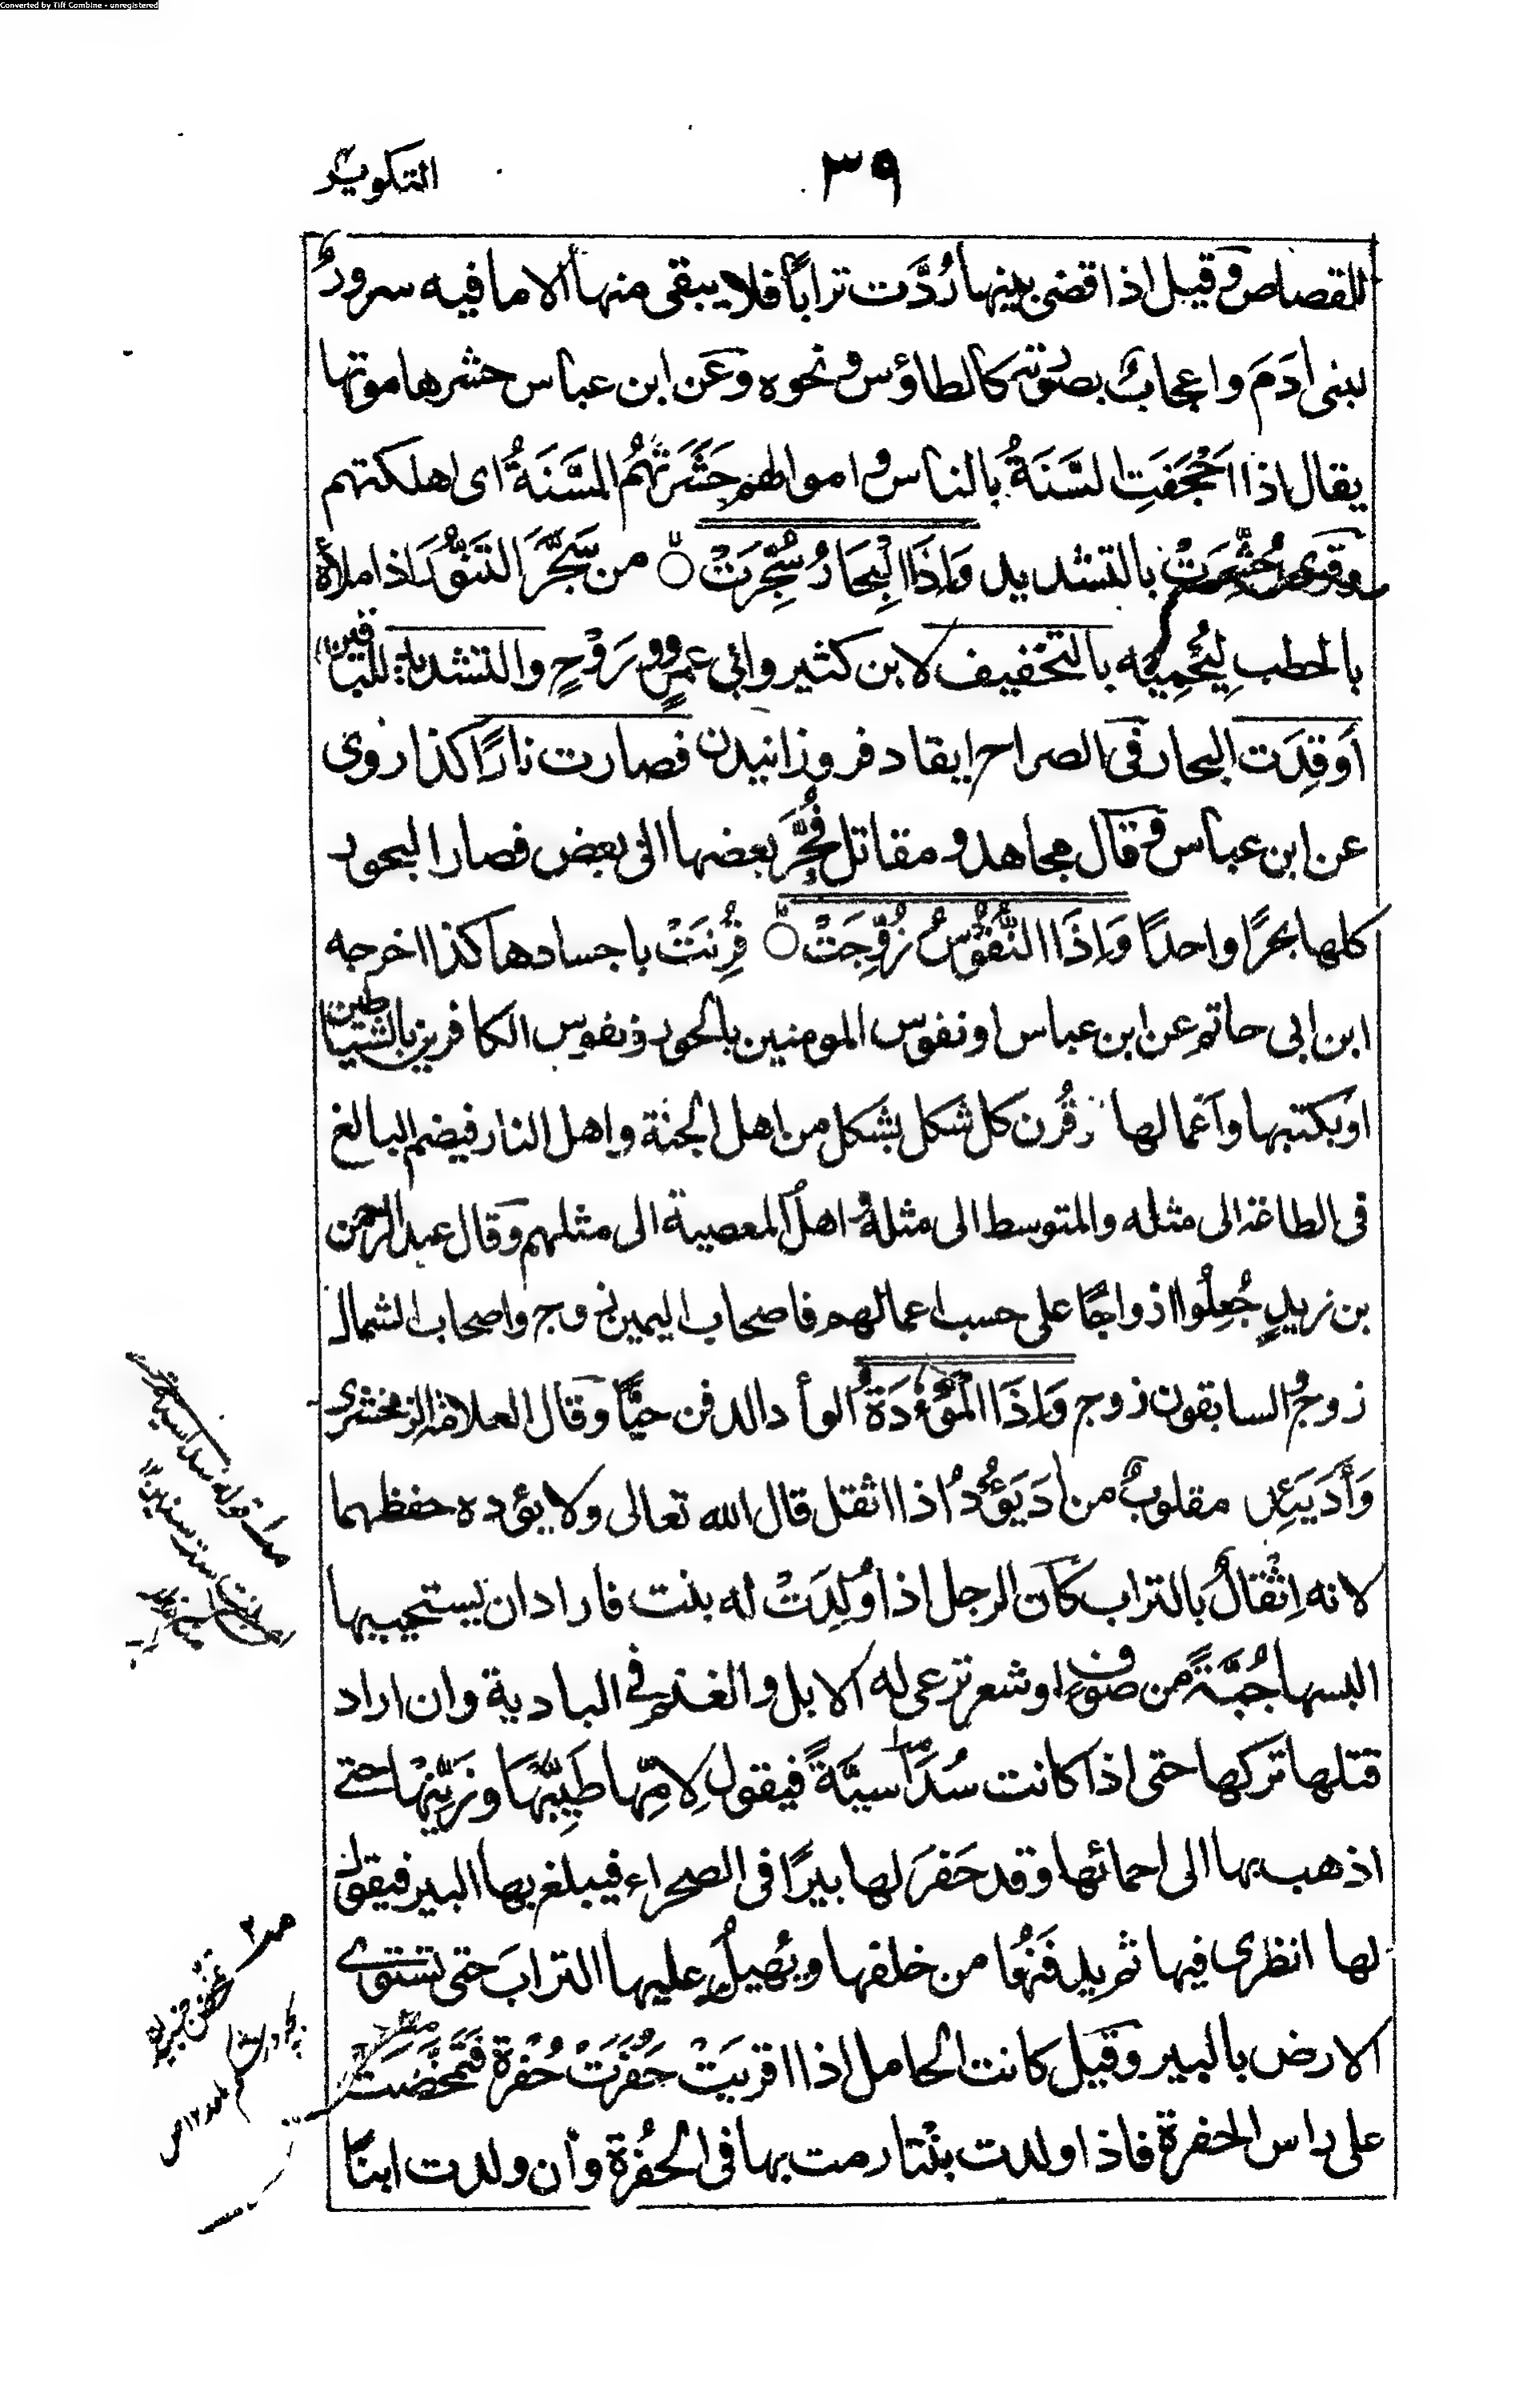 Converted by Tiff Combine - unregistered
٣٩
التكوير
للقصاص وقيل اذا قضى بينها رُدَّت ترابًا فلا يبقى منها الا ما فيه سرورٌ
لبنى ادَمَ واعجابٌ بصُوَته كالطاؤس ونحوه وعَن ابن عباس حشرها موتها
يقال اذا اَجْحَفَتِ السَّنَةُ بالناس و اموالهم حَشَرَتْهُم السَّنَةُ اى اهلكتهم
وقرئ حُشِّرَتْ بالتشديد وَاِذَا الْبِحَارُ سُجِّرَتْ من سَجَّرَ التَنُّوْرَ اذا ملأه
بالحطب لِيُحْمِيَه بالتخفيف لابن كثير وابى عمرٍو ورَوْحٍ والتشديد للباقين
أوقِدَت البحار فى الصراح ايقاد فروزانيدن فصارت نارًا كذا روى
عن ابن عباس وقال مجاهد و مقاتل فُجِّرَ بعضها الى بعض فصار البحور
كلها بحرًا واحدًا وَاِذَا النُّفُوْسُ زُوِّجَتْ قُرِنَتْ باجسادها كذا اخرجه
ابن ابى حاتم عن ابن عباس او نفوس المومنين بالحور ونفوس الكافرين بالشياطين
او بكتبها واَعمالها وقُرن كل شكل بشكل من اهل الجنة واهل النار فيضم البالغ
فى الطاعة الى مثله والمتوسط الى مثله واهل المعصية الى مثلهم وقال عبد الرحمن
بن زيدٍ جُعِلُوا ازواجًا على حسب اعمالهم فاصحاب اليمين زوج واصحاب الشمال
زوجٌ السابقون زوج وَاِذَا الْمَوْءُدَةُ الوأد الدفن حيًّا وقال العلامة الزمخشرى
وَأَدَ يَئِدُ مقلوبٌ من اٰدَ يَؤُدُ اذا اثقل قال الله تعالى ولا يؤده حفظهما
لانه اِثْقالٌ بالتراب كان الرجل اذا وُلِدَتْ له بنت فاراد ان يستحييها
البسها جُبَّةً من صوفٍ او شعر ترعى له الابل والغنم فى البادية وان اراد
قتلها تركها حتى اذا كانت سُدَاسيَّةً فيقول لِامِّها طَيِّبِيْهَا وزَيِّنِيْها حتى
اذهب بها الى احمائها وقد حَفرَ لها بيرًا فى الصحراء فيبلغ بها البير فيقول
لها انظرى فيها ثم يدفَعُها من خلفها ويُهيلُ عليها الترابَ حتى تستوى
الارض بالبير وقيل كانت الحامل اذا اقربَتْ حَفَرَتْ حُفرة فتمخّضَتْ
على راس الحفرة فاذا ولدت بنتا رمت بها فى الحُفرة وأن ولدت ابنًا